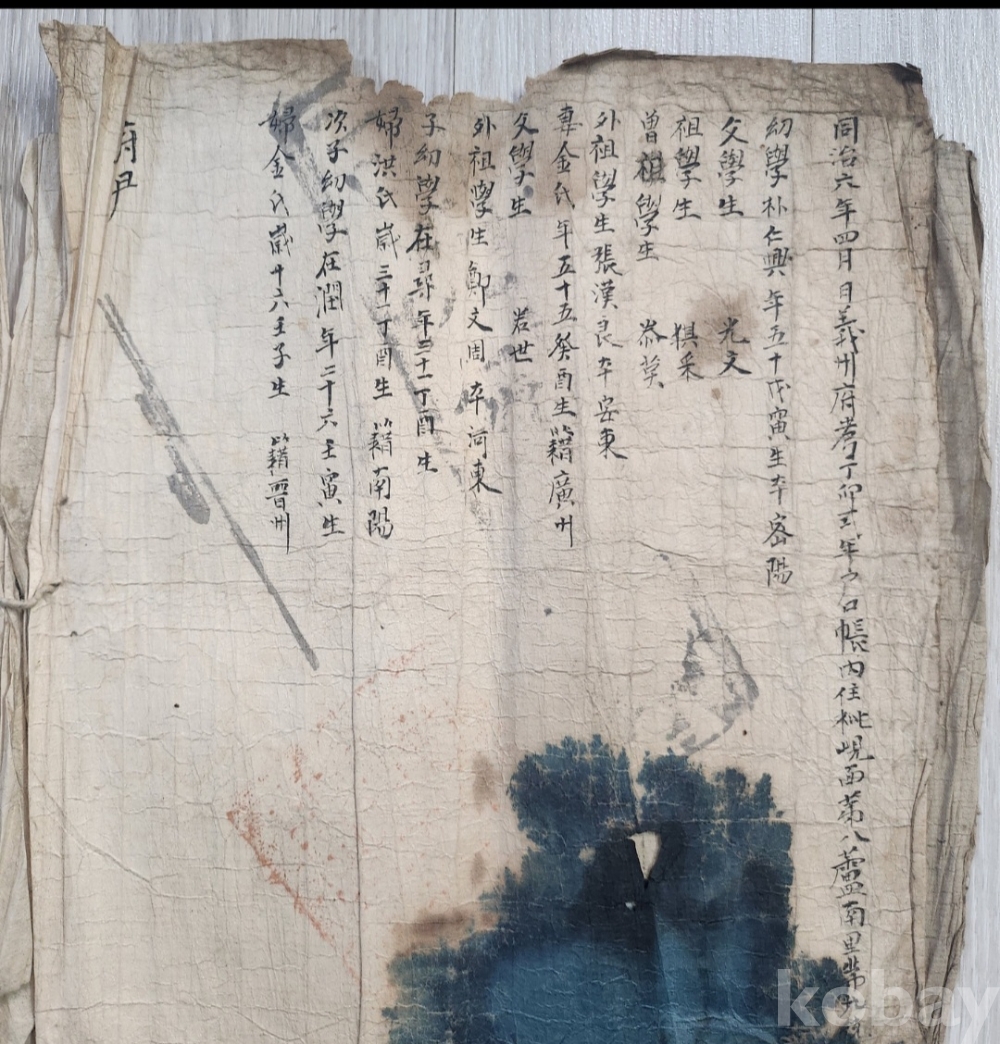 同治六年四月 日義州府考丁卯式年戶口帳內住桃峴面第八蘆南里第九
幼學朴仁興年五十戊寅生本密陽
父學生 光文
祖學生
曾祖學生
外祖學生張漢良本安東
妻金氏年五十五癸酉生籍廣州
父學生 岩世
外祖學生鄭文周本河東
子幼學在尋年三十一丁酉生
婦洪氏歲三十一丁酉生 籍南陽
次子幼學在潤年二十六壬寅生
婦金氏歲十六壬子生 籍晋州
府尹
kobay